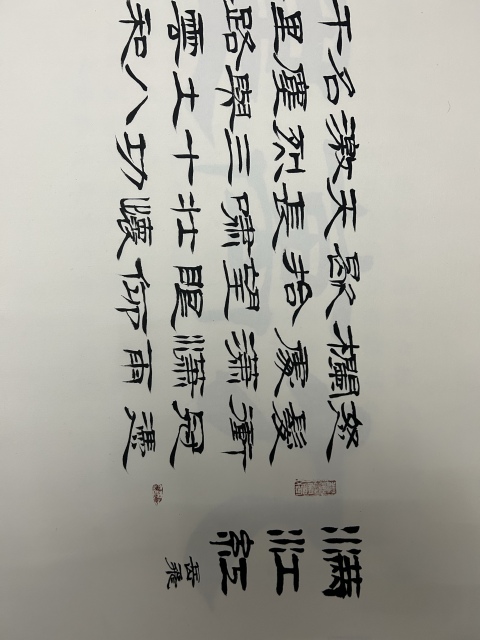 滿江紅
岳飛
怒髮衝冠憑
欄處瀟瀟雨
歇抬望眼仰
天長嘯壯懷
激烈三十功
名塵與土八
千里路雲和